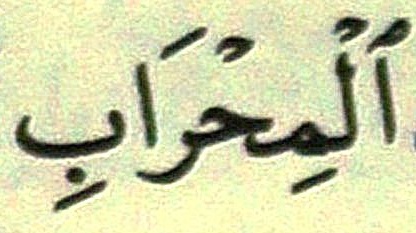 ٱلْمِحْرَابِ